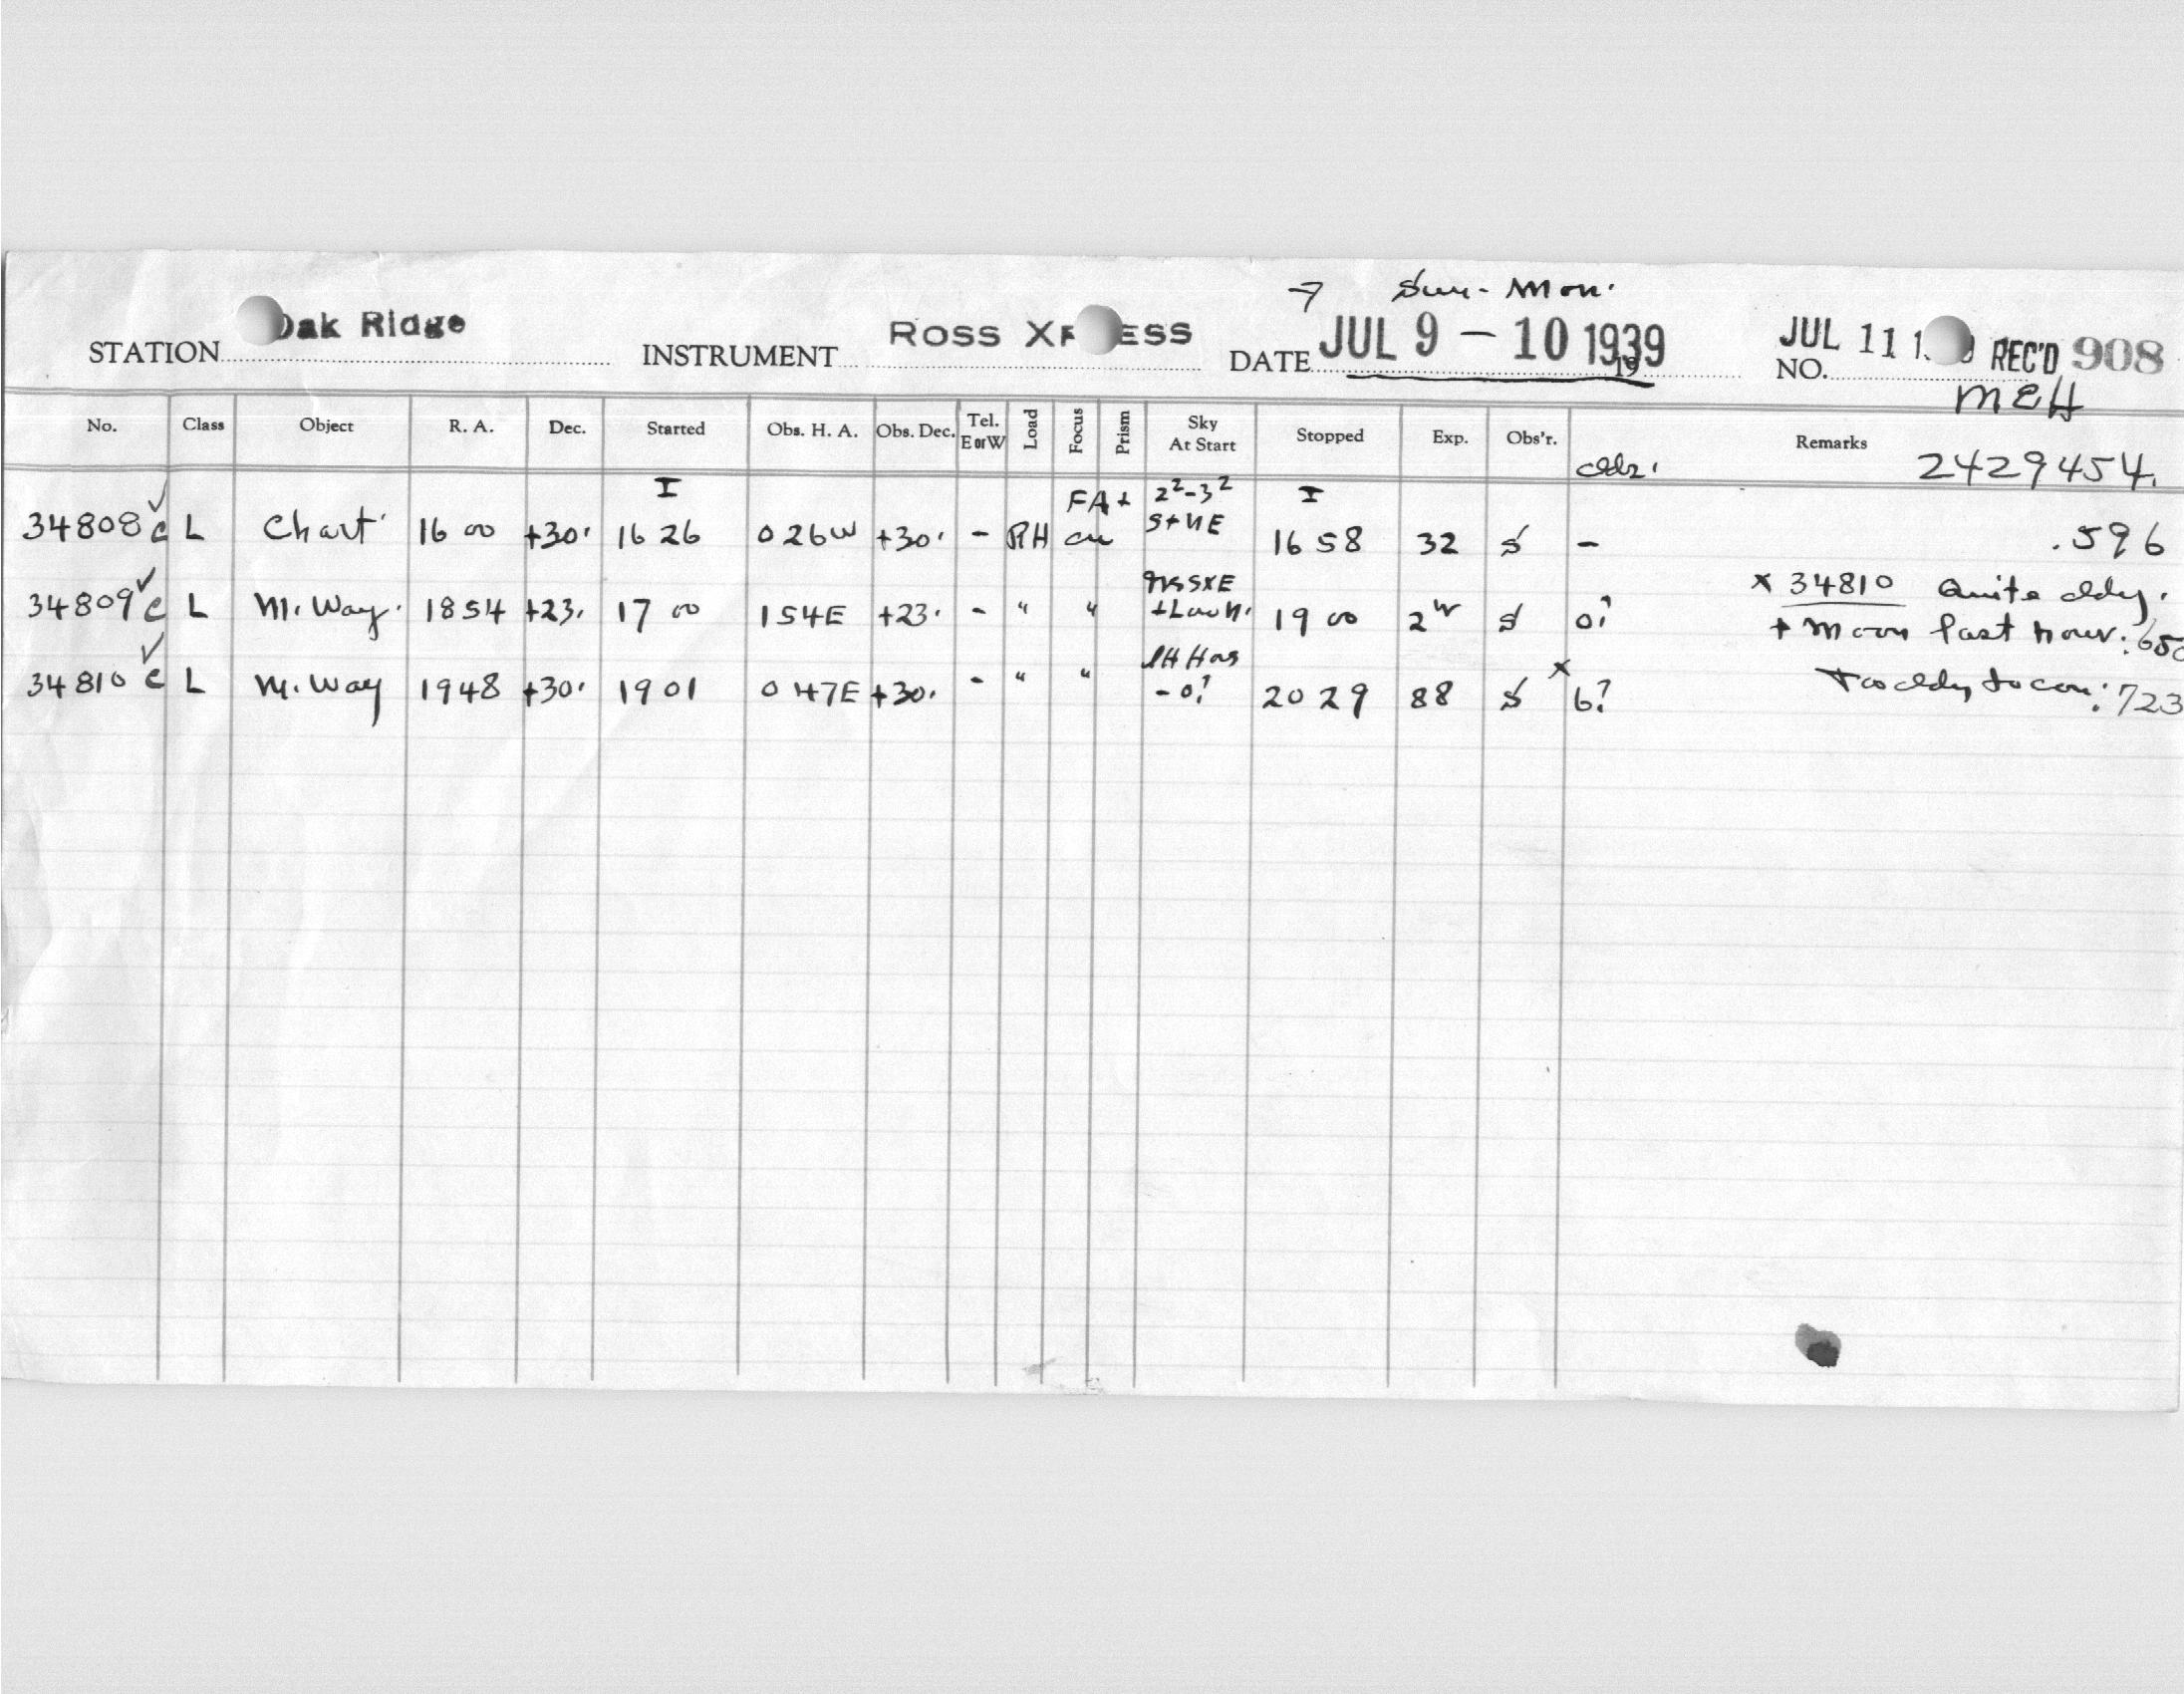 → Sun - Mon.
STATION Oak Ridge INSTRUMENT ROSS XPRESS DATE JUL 9 - 10 1939 19 JUL 11 REC'D NO. 908
MEH
No. Class Object R. A. Dec. Started Obs. H. A. Obs. Dec. Tel. E or W Load Focus Prism Sky At Start Stopped Exp. Obs'r. cldz. Remarks 2429454.
I FA + 2²-3² I
34808 c ✓ L Chart 16 00 +30. 16 26 0 26 W +30. - RH cu S+NE 16 58 32 S - .596
34809 c ✓ L M. Way. 18 54 +23. 17 00 1 54 E +23. - " " 19 00 2 S 0? x 34810 Quite cldy. + moon last hour.
34810 c ✓ L M. Way 19 48 +30. 19 01 0 47 E +30. - " " - 0? 20 29 88 S x 6? Too cldy to con. .723